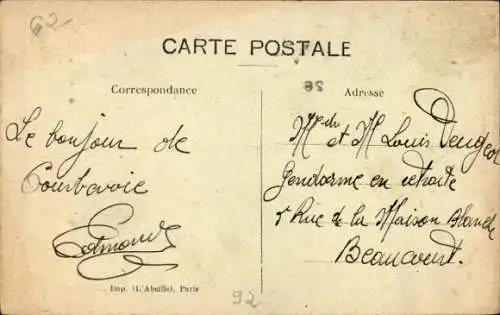 62
CARTE POSTALE
Correspondance
Adresse
Le bonjour de
Courbevoie
Edmond
Mme et M Louis Peugeot
Gendarme en retraite
5 Rue de la Maison Blanche
Beaucourt.
Imp. (L'Abeille), Paris
92